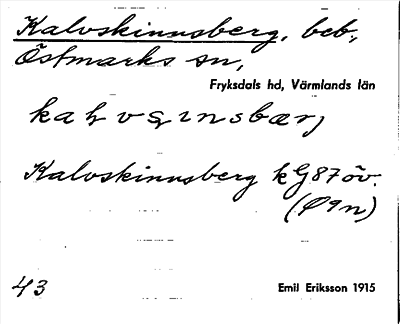 Kalvskinnsberg, beb.,
Östmarks sn,
Fryksdals hd, Värmlands län
Kalvskinnsberg kG87öv.
(Ø9n)
43 Emil Eriksson 1915